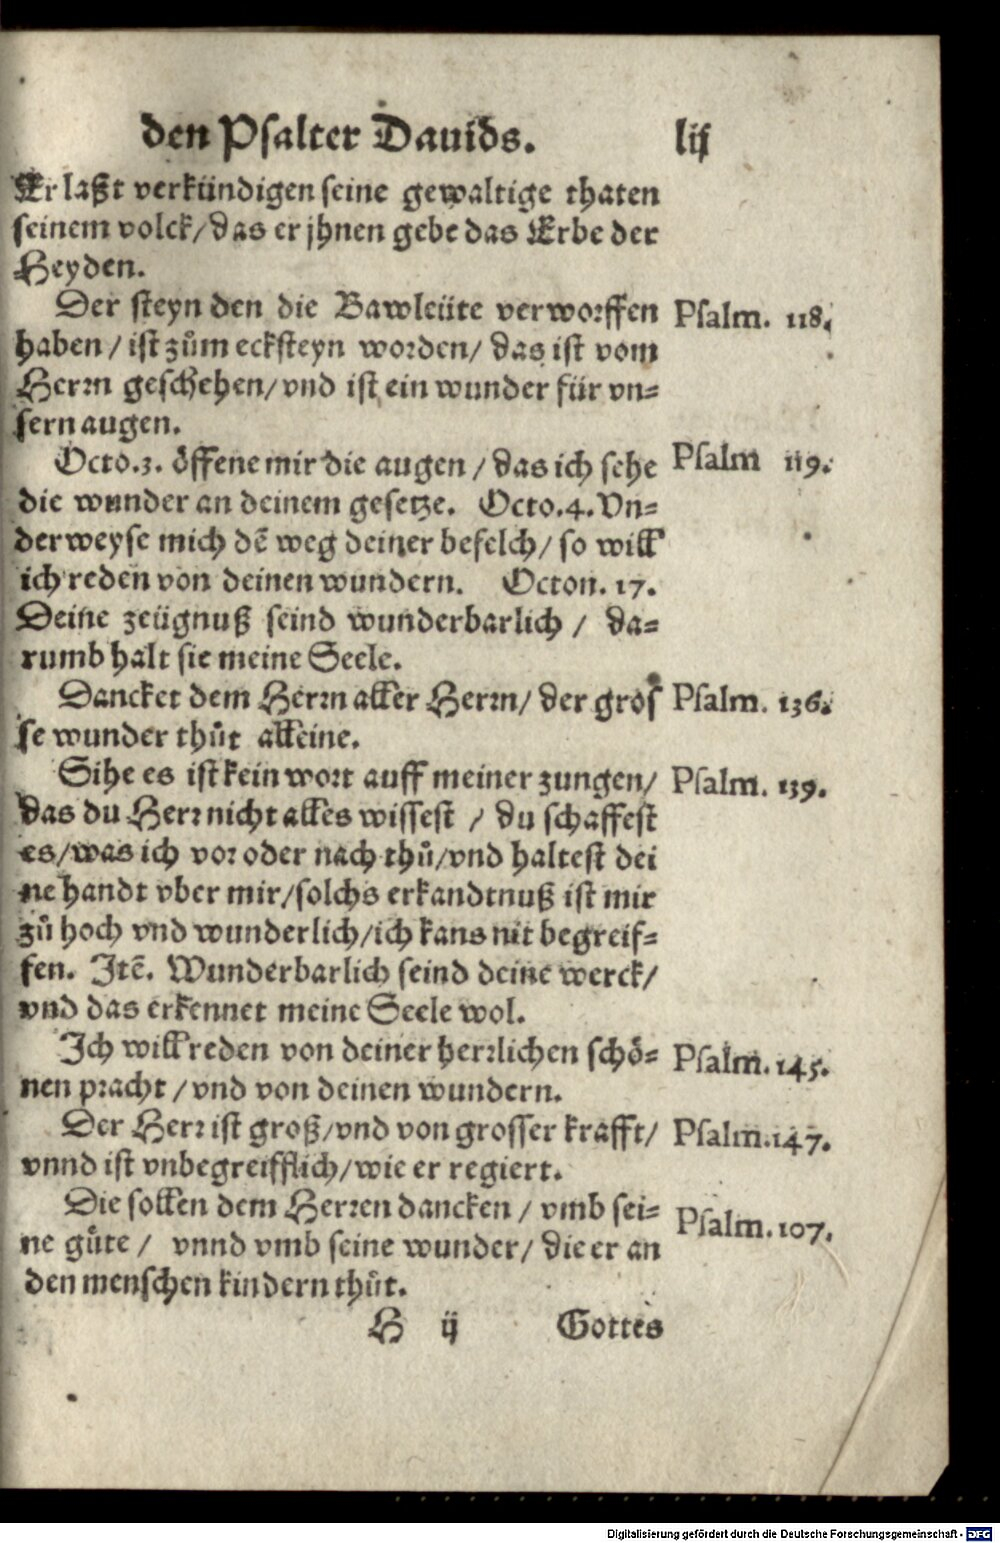 den Psalter Dauids. lij
Er laßt verkündigen seine gewaltige thaten
seinem volck/das er jhnen gebe das Erbe der
Heyden.
Der steyn den die Bawleüte verworffen Psalm. 118.
haben/ist zům ecksteyn worden/das ist vom
Herrn geschehen/vnd ist ein wunder für vn=
sern augen.
Octo.3. öffene mir die augen/das ich sehe Psalm 119.
die wunder an deinem gesetze. Octo.4. Vn=
derweyse mich dē weg deiner befelch/so will
ich reden von deinen wundern. Octon. 17.
Deine zeügnuß seind wunderbarlich/da=
rumb halt sie meine Seele.
Dancket dem Herrn aller Herrn/der gros Psalm. 136.
se wunder thůt alleine.
Sihe es ist kein wort auff meiner zungen/ Psalm. 139.
das du Herr nicht alles wissest/du schaffest
es/was ich vor oder nach thů/vnd haltest dei
ne handt vber mir/solchs erkandtnuß ist mir
zů hoch vnd wunderlich/ich kans nit begreif=
fen. Itē. Wunderbarlich seind deine werck/
vnd das erkennet meine Seele wol.
Ich will reden von deiner herrlichen schö= Psalm. 145.
nen pracht/vnd von deinen wundern.
Der Herr ist groß/vnd von grosser krafft/ Psalm. 147.
vnnd ist vnbegreifflich/wie er regiert.
Die sollen dem Herren dancken/vmb sei= Psalm. 107.
ne gůte/vnnd vmb seine wunder/die er an
den menschen kindern thůt.
H ij Gottes
Digitalisierung gefördert durch die Deutsche Forschungsgemeinschaft - DFG